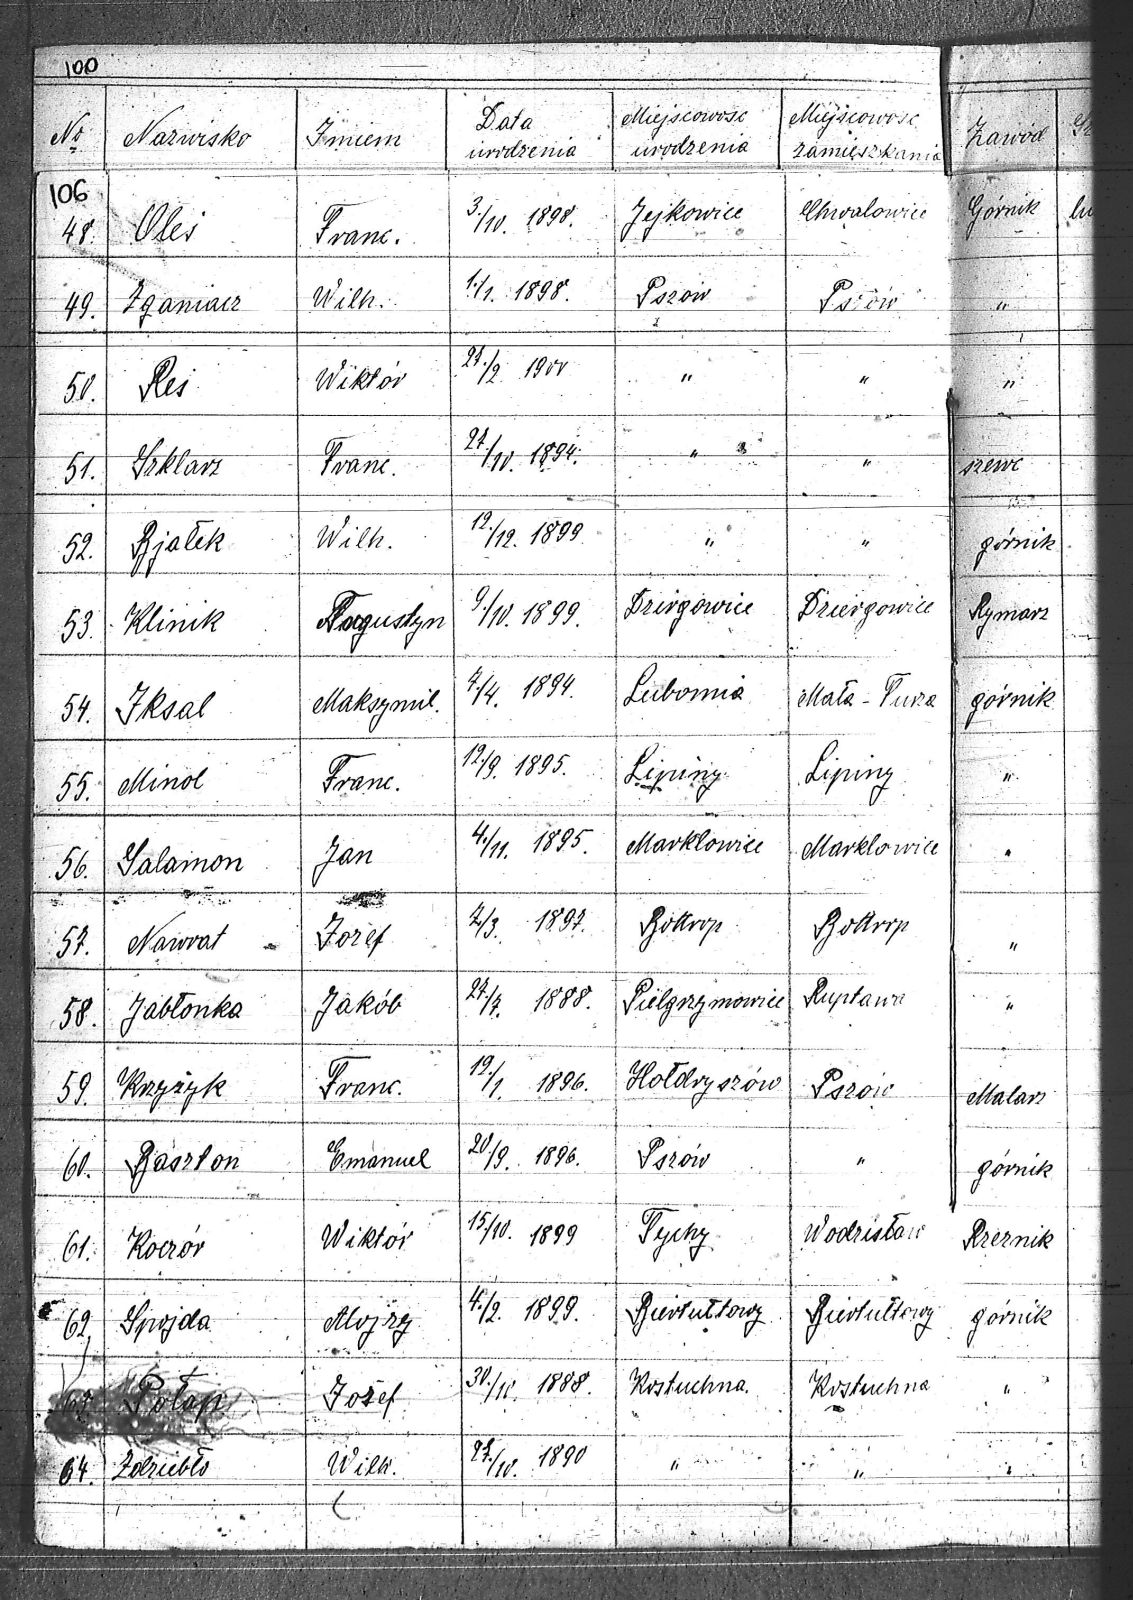 100
No Nazwisko Imiem Data urodzenia Miejscowosc urodzenia Miejscowosc zamieszkania Zawód
106
48. Oleś Franc. 3./10. 1898. Jejkowice Chwałowice Górnik
49. Zganiacz Wilh. 1./1. 1898. Pszów Pszów "
50. Reś Wiktór 1900 " " "
51. Szklarz Franc. 1894. " " szewc
52. Bjałek Wilh. 12./12. 1899 " " górnik
53. Klinik Augustyn 9./10. 1899. Dziergowice Dziergowice Rymarz
54. Iksal Maksymil. 7./4. 1894. Lubomia Mała-Turza górnik
55. Minol Franc. 12./9. 1895. Lipiny Lipiny "
56. Salamon Jan 4./11. 1895. Marklowice Marklowice "
57. Nawrat Jozef 1897. Bottrop Bottrop "
58. Jabłonka Jakób 27./7. 1888. Pielgrzymowice Ruptawa "
59. Krzyżyk Franc. 19./1. 1896. Hołdryszów Pszów Malarz
60. Baszton Emanuel 20./9. 1896. Pszów " górnik
61. Koczór Wiktór 15./10. 1899 Tychy Wodzisław Rzeznik
62. Spojda Alojzy 4./2. 1899. Biertułtowy Biertułtowy górnik
63. Potap Jozef 1888. Kostuchna. Kostuchna "
64. Zdziebło Wilh. 1890 " " "